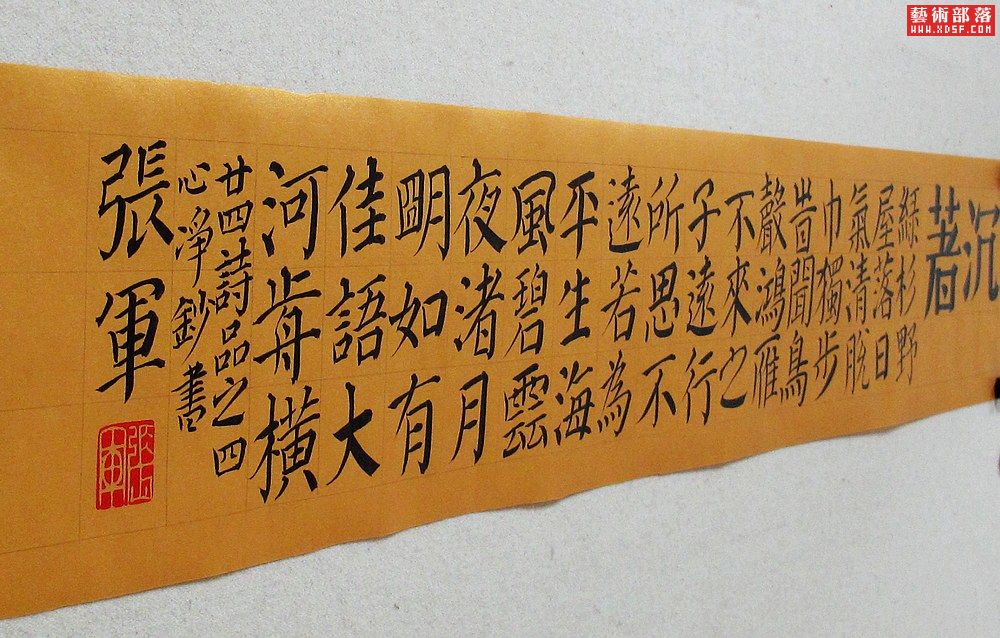 藝術部落
WWW.XDSF.COM
沉
著
綠杉野
屋落日
氣清脫
巾獨步
旹聞鳥
聲鴻雁
不來之
子遠行
所思不
遠若為
平生海
風碧雲
夜渚月
朙如有
佳語大
河歬橫
廿四詩品之四
心淨鈔書
張軍